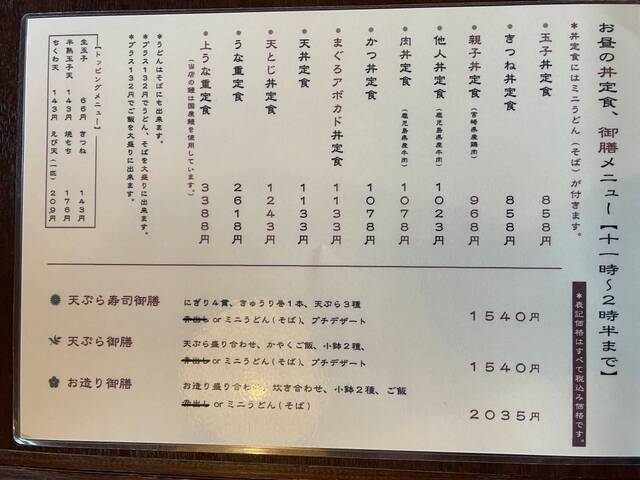 お昼の丼定食、御膳メニュー【十一時～2時半まで】
*丼定食にはミニうどん(そば)が付きます。
*表記価格はすべて税込み価格です。
●玉子丼定食 858円
●きつね丼定食 858円
●親子丼定食(宮崎県産鶏肉) 968円
●他人丼定食(鹿児島県産牛肉) 1023円
●肉丼定食(鹿児島県産牛肉) 1078円
●かつ丼定食 1078円
●まぐろアボカド丼定食 1133円
●天丼定食 1133円
●天とじ丼定食 1243円
●うな重定食 2618円
●上うな重定食 3388円
(当店の鰻は国産鰻を使用しています。)
*うどんはそばにも出来ます。
*プラス132円でうどん、そばを大盛りに出来ます。
*プラス132円でご飯を大盛りに出来ます。
【トッピングメニュー】
生玉子 66円 きつね 143円
半熟玉子天 143円 焼もち 176円
ちくわ天 143円 えび天(一匹) 209円
天ぷら寿司御膳 にぎり4貫、きゅうり巻1本、天ぷら3種
赤出し or ミニうどん(そば)、プチデザート 1540円
天ぷら御膳 天ぷら盛り合わせ、かやくご飯、小鉢2種、
赤出し or ミニうどん(そば)、プチデザート 1540円
お造り御膳 お造り盛り合わせ、炊き合わせ、小鉢2種、ご飯
赤出し or ミニうどん(そば) 2035円